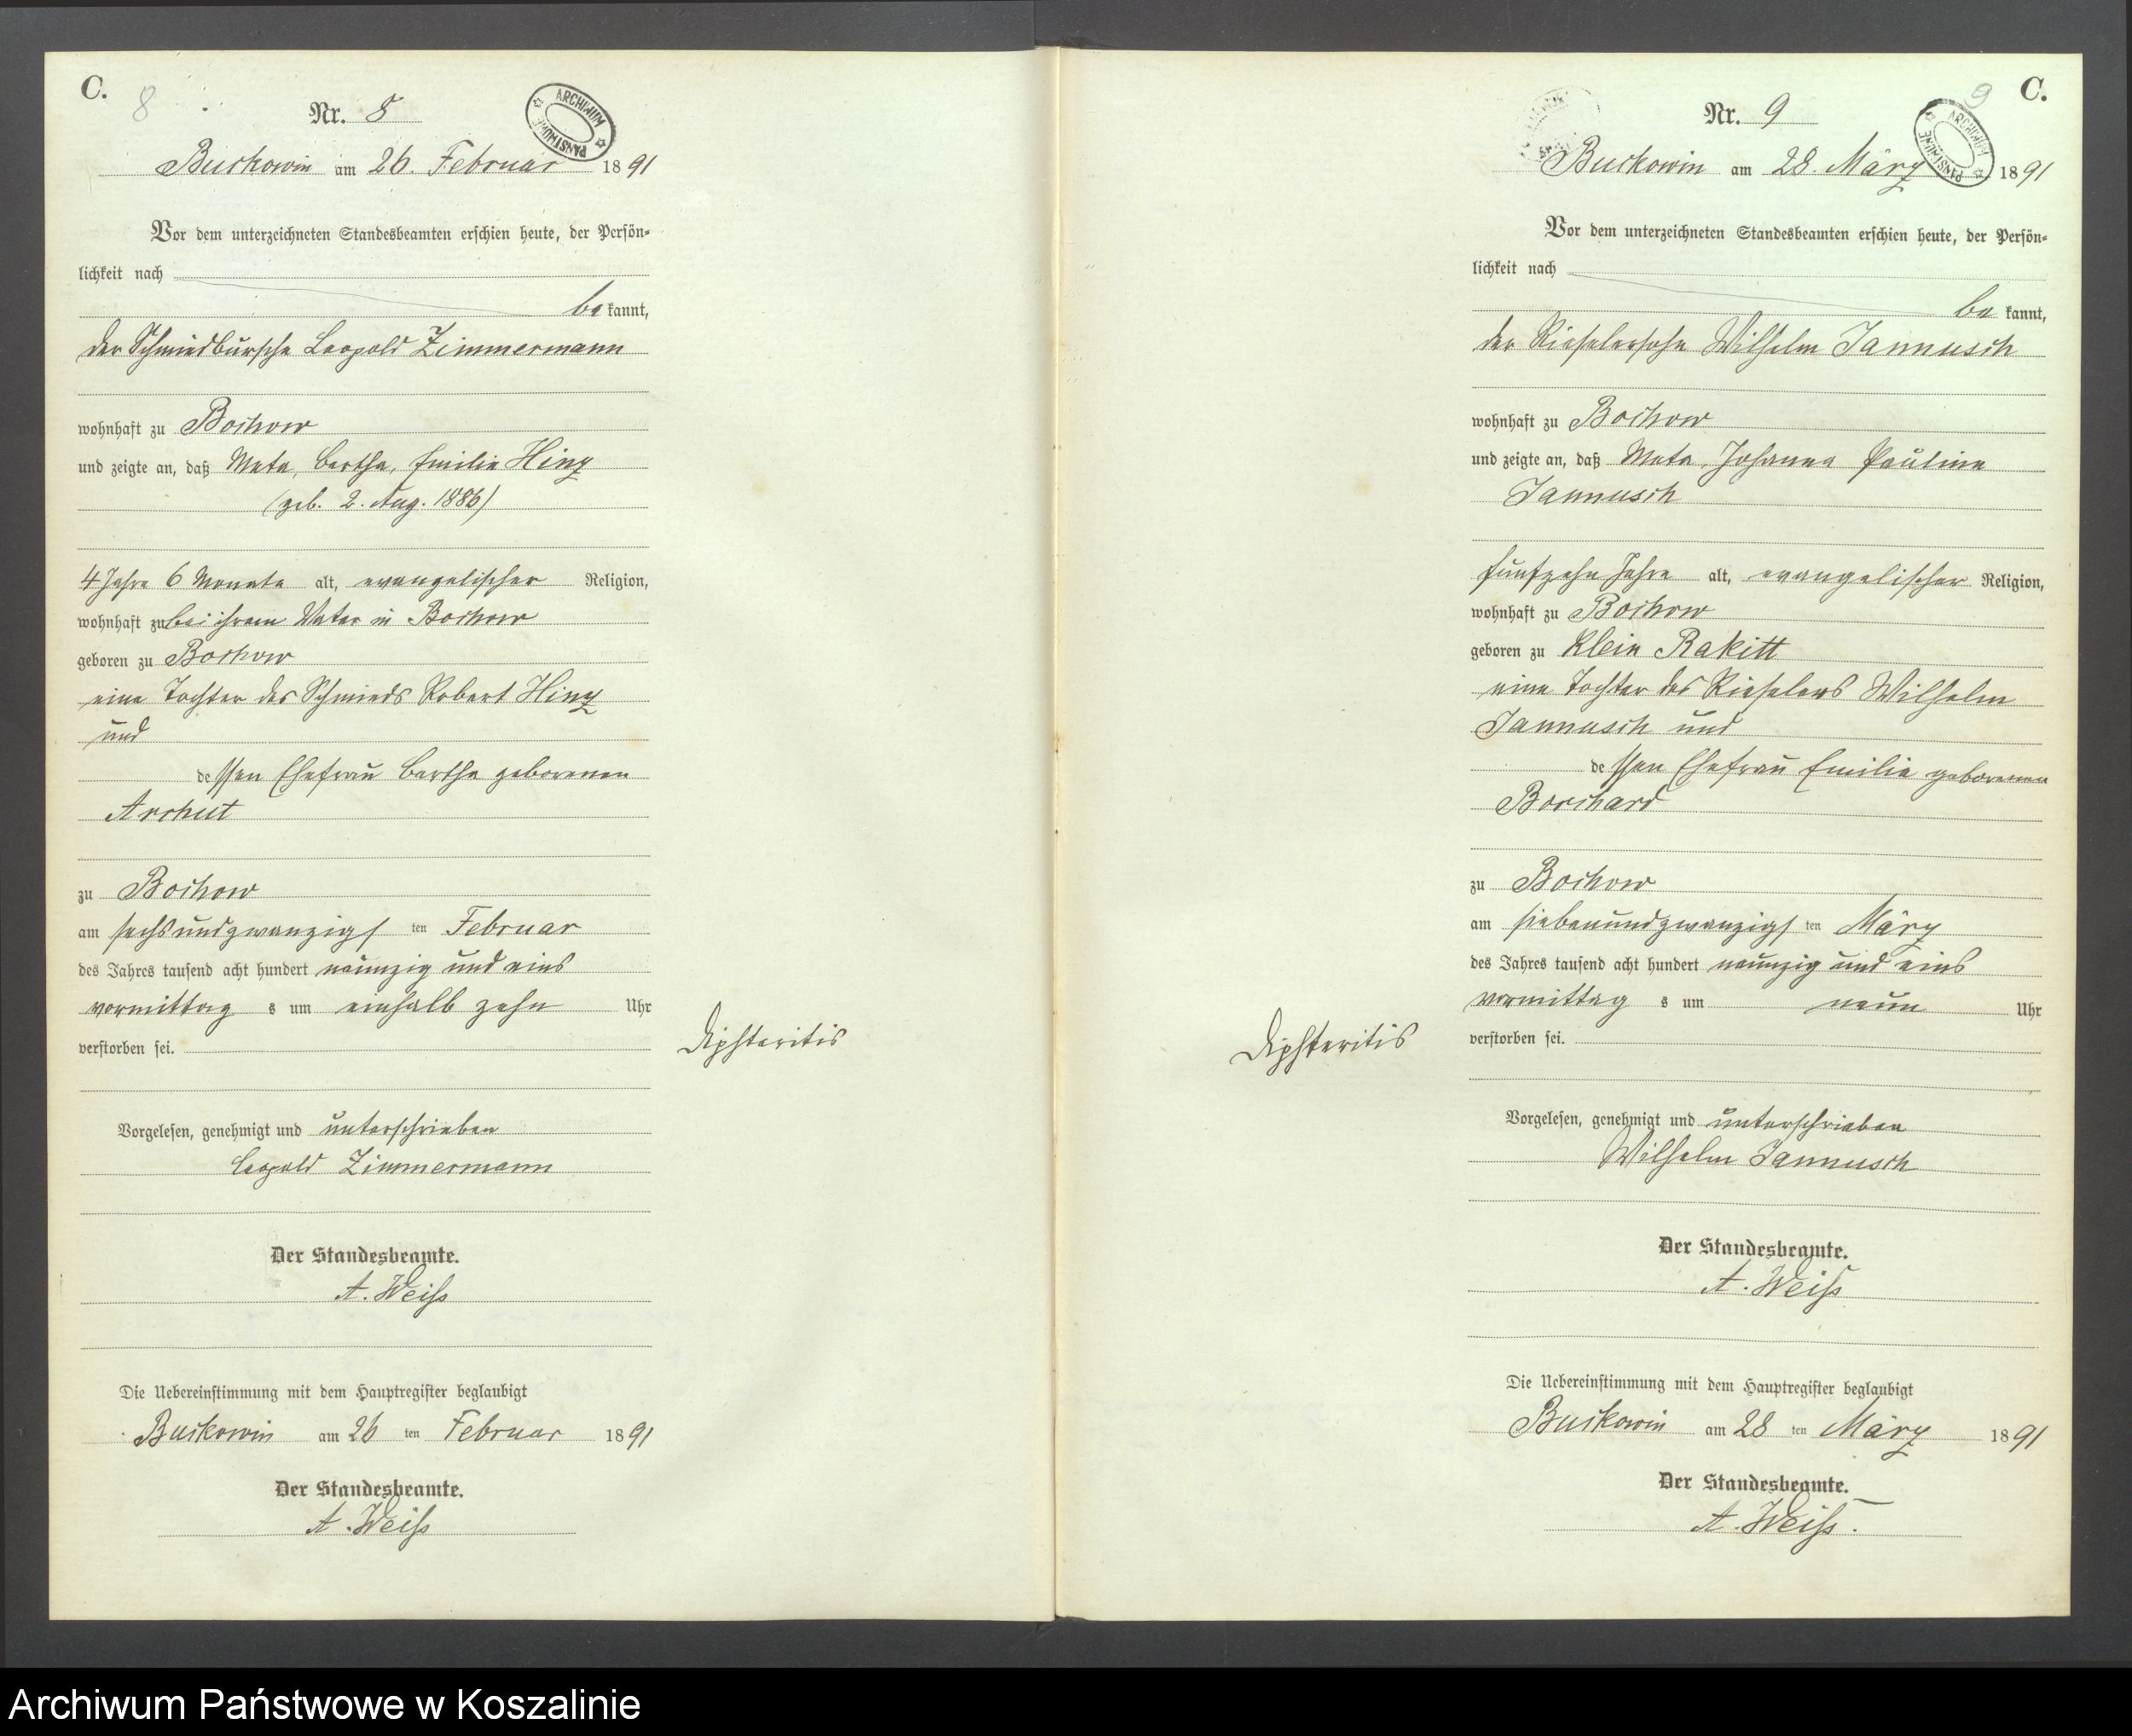 C.
8
Nr. 8
ARCHIWUM PAŃSTWOWE
Buckowin am 26. Februar 1891
Vor dem unterzeichneten Standesbeamten erschien heute, der Persön-
lichkeit nach
be kannt,
der Schmiedbursche Leopold Zimmermann
wohnhaft zu Bochow
und zeigte an, daß Meta, Bertha, Emilie Hinz
(geb. 2. Aug. 1886)
4 Jahre 6 Monate alt, evangelischer Religion,
wohnhaft zu bei ihrem Vater in Bochow
geboren zu Bochow
eine Tochter des Schmieds Robert Hinz
und
dessen Ehefrau Bertha geborenen
Archut
zu Bochow
am sechsundzwanzigsten Februar
des Jahres tausend acht hundert neunzig und eins
vormittags um einhalb zehn Uhr
verstorben sei.
Diphteritis
Vorgelesen, genehmigt und unterschrieben
Leopold Zimmermann
Der Standesbeamte.
A. Weiß
Die Uebereinstimmung mit dem Hauptregister beglaubigt
Buckowin am 26 ten Februar 1891
Der Standesbeamte.
A. Weiß
9
C.
Nr. 9
ARCHIWUM PAŃSTWOWE
Buckowin am 28. März 1891
Vor dem unterzeichneten Standesbeamten erschien heute, der Persön-
lichkeit nach
be kannt,
der Rieselersohn Wilhelm Jannusch
wohnhaft zu Bochow
und zeigte an, daß Meta, Johanna Pauline
Jannusch
fünfzehn Jahre alt, evangelischer Religion,
wohnhaft zu Bochow
geboren zu Klein Rakitt
eine Tochter des Rieselers Wilhelm
Jannusch und
dessen Ehefrau Emilie geborenen
Borchard
zu Bochow
am siebenundzwanzigsten März
des Jahres tausend acht hundert neunzig und eins
vormittags um neun Uhr
verstorben sei.
Diphteritis
Vorgelesen, genehmigt und unterschrieben
Wilhelm Jannusch
Der Standesbeamte.
A. Weiß
Die Uebereinstimmung mit dem Hauptregister beglaubigt
Buckowin am 28 ten März 1891
Der Standesbeamte.
A. Weiß.
Archiwum Państwowe w Koszalinie